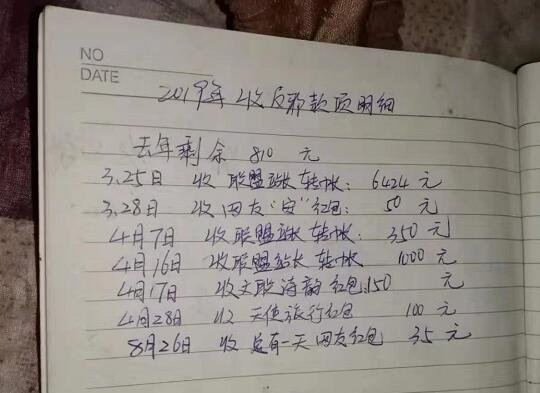 NO
DATE
2019年 收反邪款项明细
去年剩余 810 元
3.25日 收 联盟站长 转帐: 6424 元
3.28日 收 网友"安"红包: 50 元
4月7日 收联盟站长 转帐: 350 元
4月16日 收联盟站长 转帐 1000 元
4月17日 收文联海韵 红包:150 元
4月28日 收 天使旅行红包 100 元
8月26日 收 总有一天 网友红包 35 元